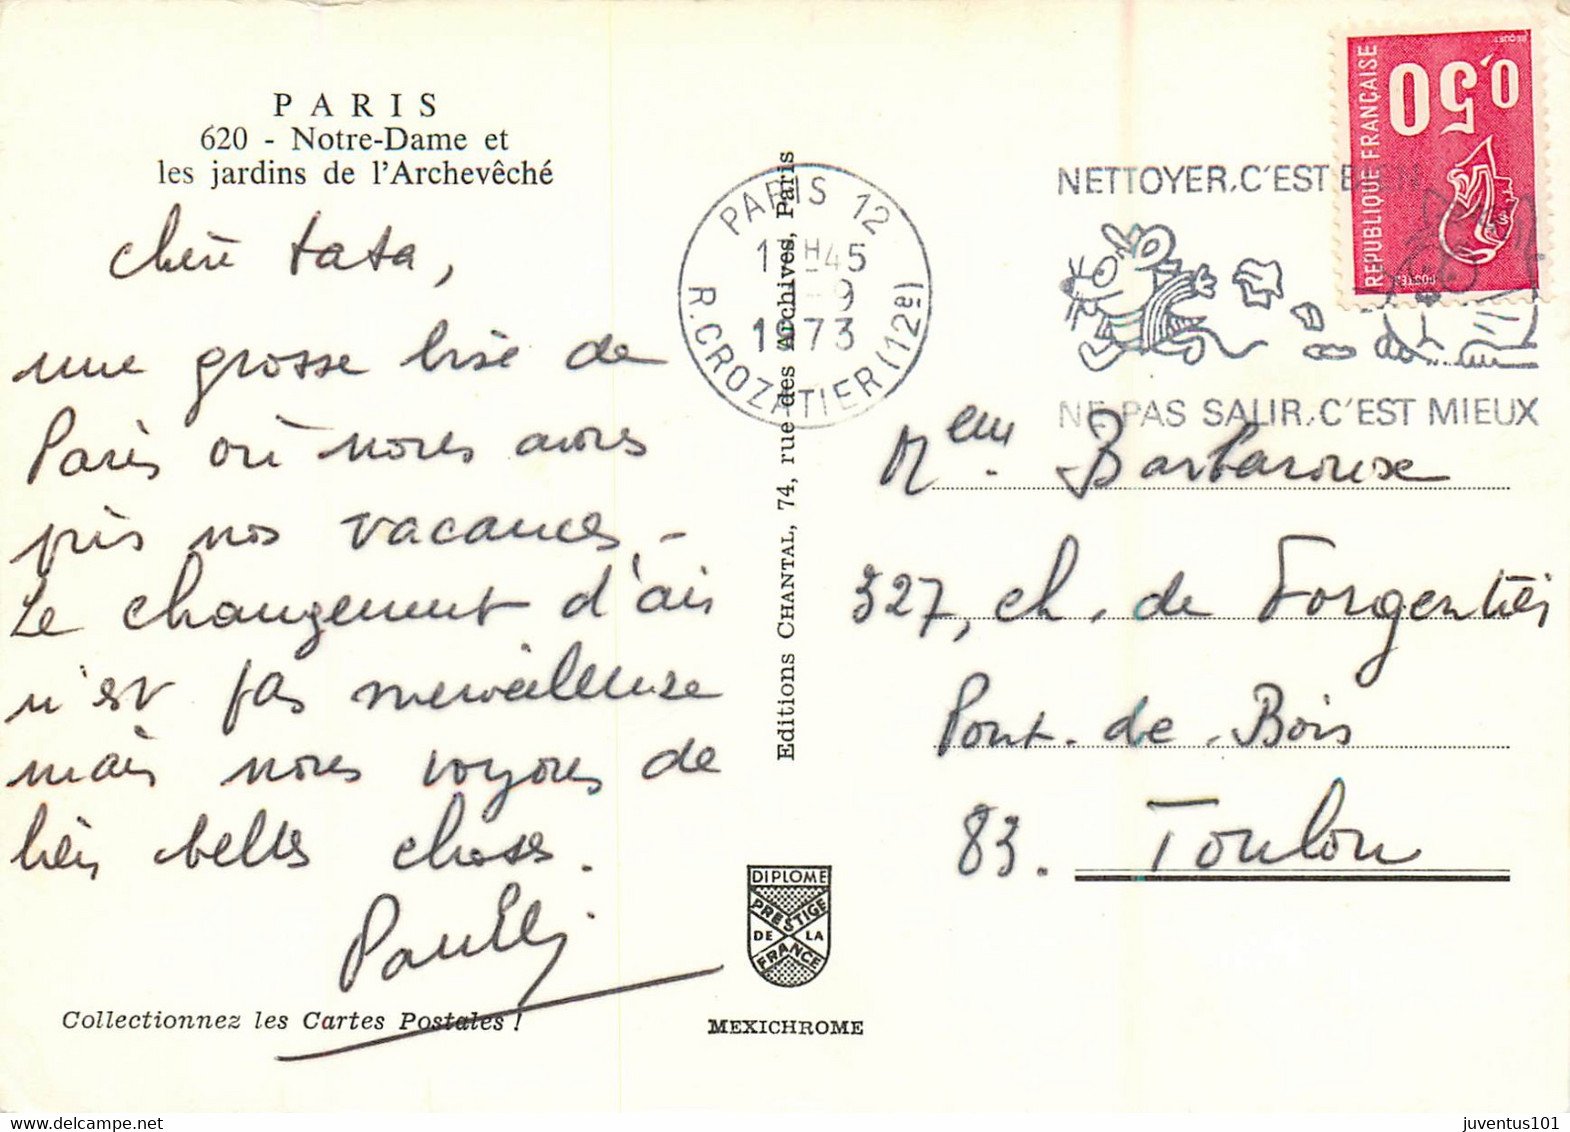 PARIS
620 - Notre-Dame et
les jardins de l'Archevêché
Chère tata,
une grosse bise de
Paris où nous avons
pris nos vacances -
Le changement d'air
n'est pas merveilleuse
mais nous voyons de
bien belles choses.
Collectionnez les Cartes Postales !
Editions CHANTAL, 74, rue des Archives, Paris
DIPLOME
PRESTIGE
DE LA
FRANCE
MEXICHROME
PARIS 12
H45
9
1973
R. CROZATIER (12e)
NETTOYER, C'EST BIEN
NE PAS SALIR, C'EST MIEUX
REPUBLIQUE FRANÇAISE
0,50
POSTES
BEQUET
Meme Barbaroux
327, ch. de Forgentier
Pont-de-Bois
83. Toulon
juventus101